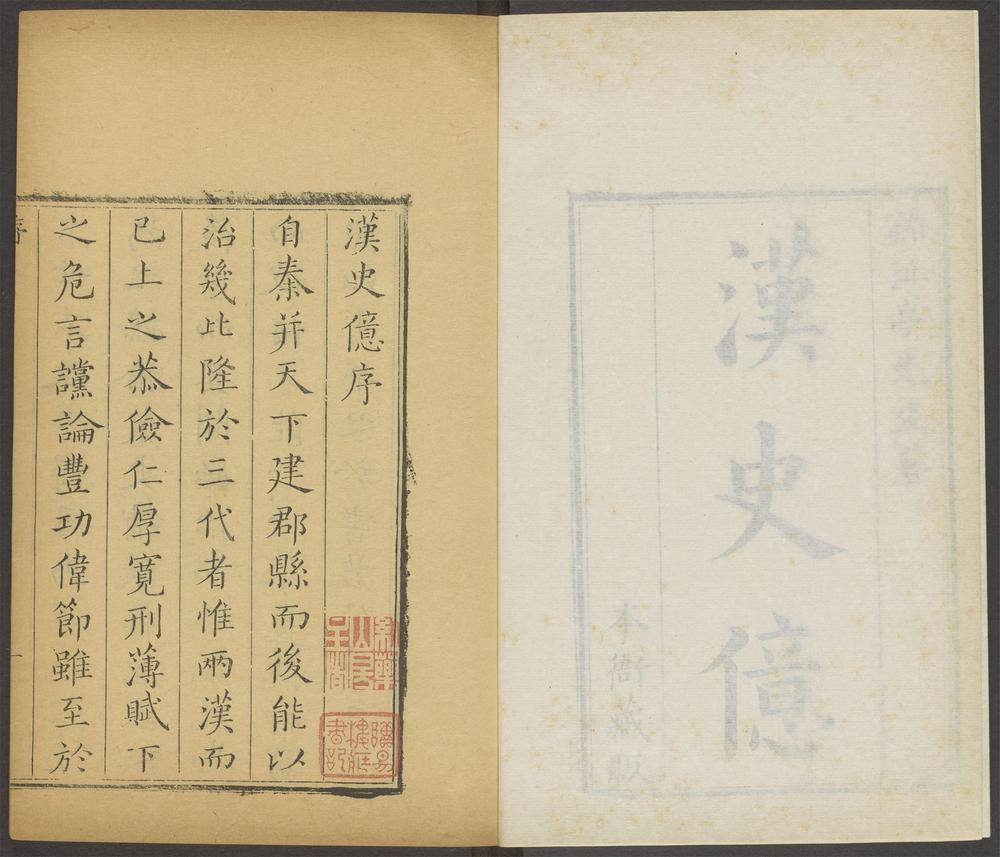 漢史億
本衙藏版
漢史億序
自秦并天下建郡縣而後能以
治幾比隆於三代者惟兩漢而
已上之恭儉仁厚寬刑薄賦下
之危言讜論豐功偉節雖至於
序